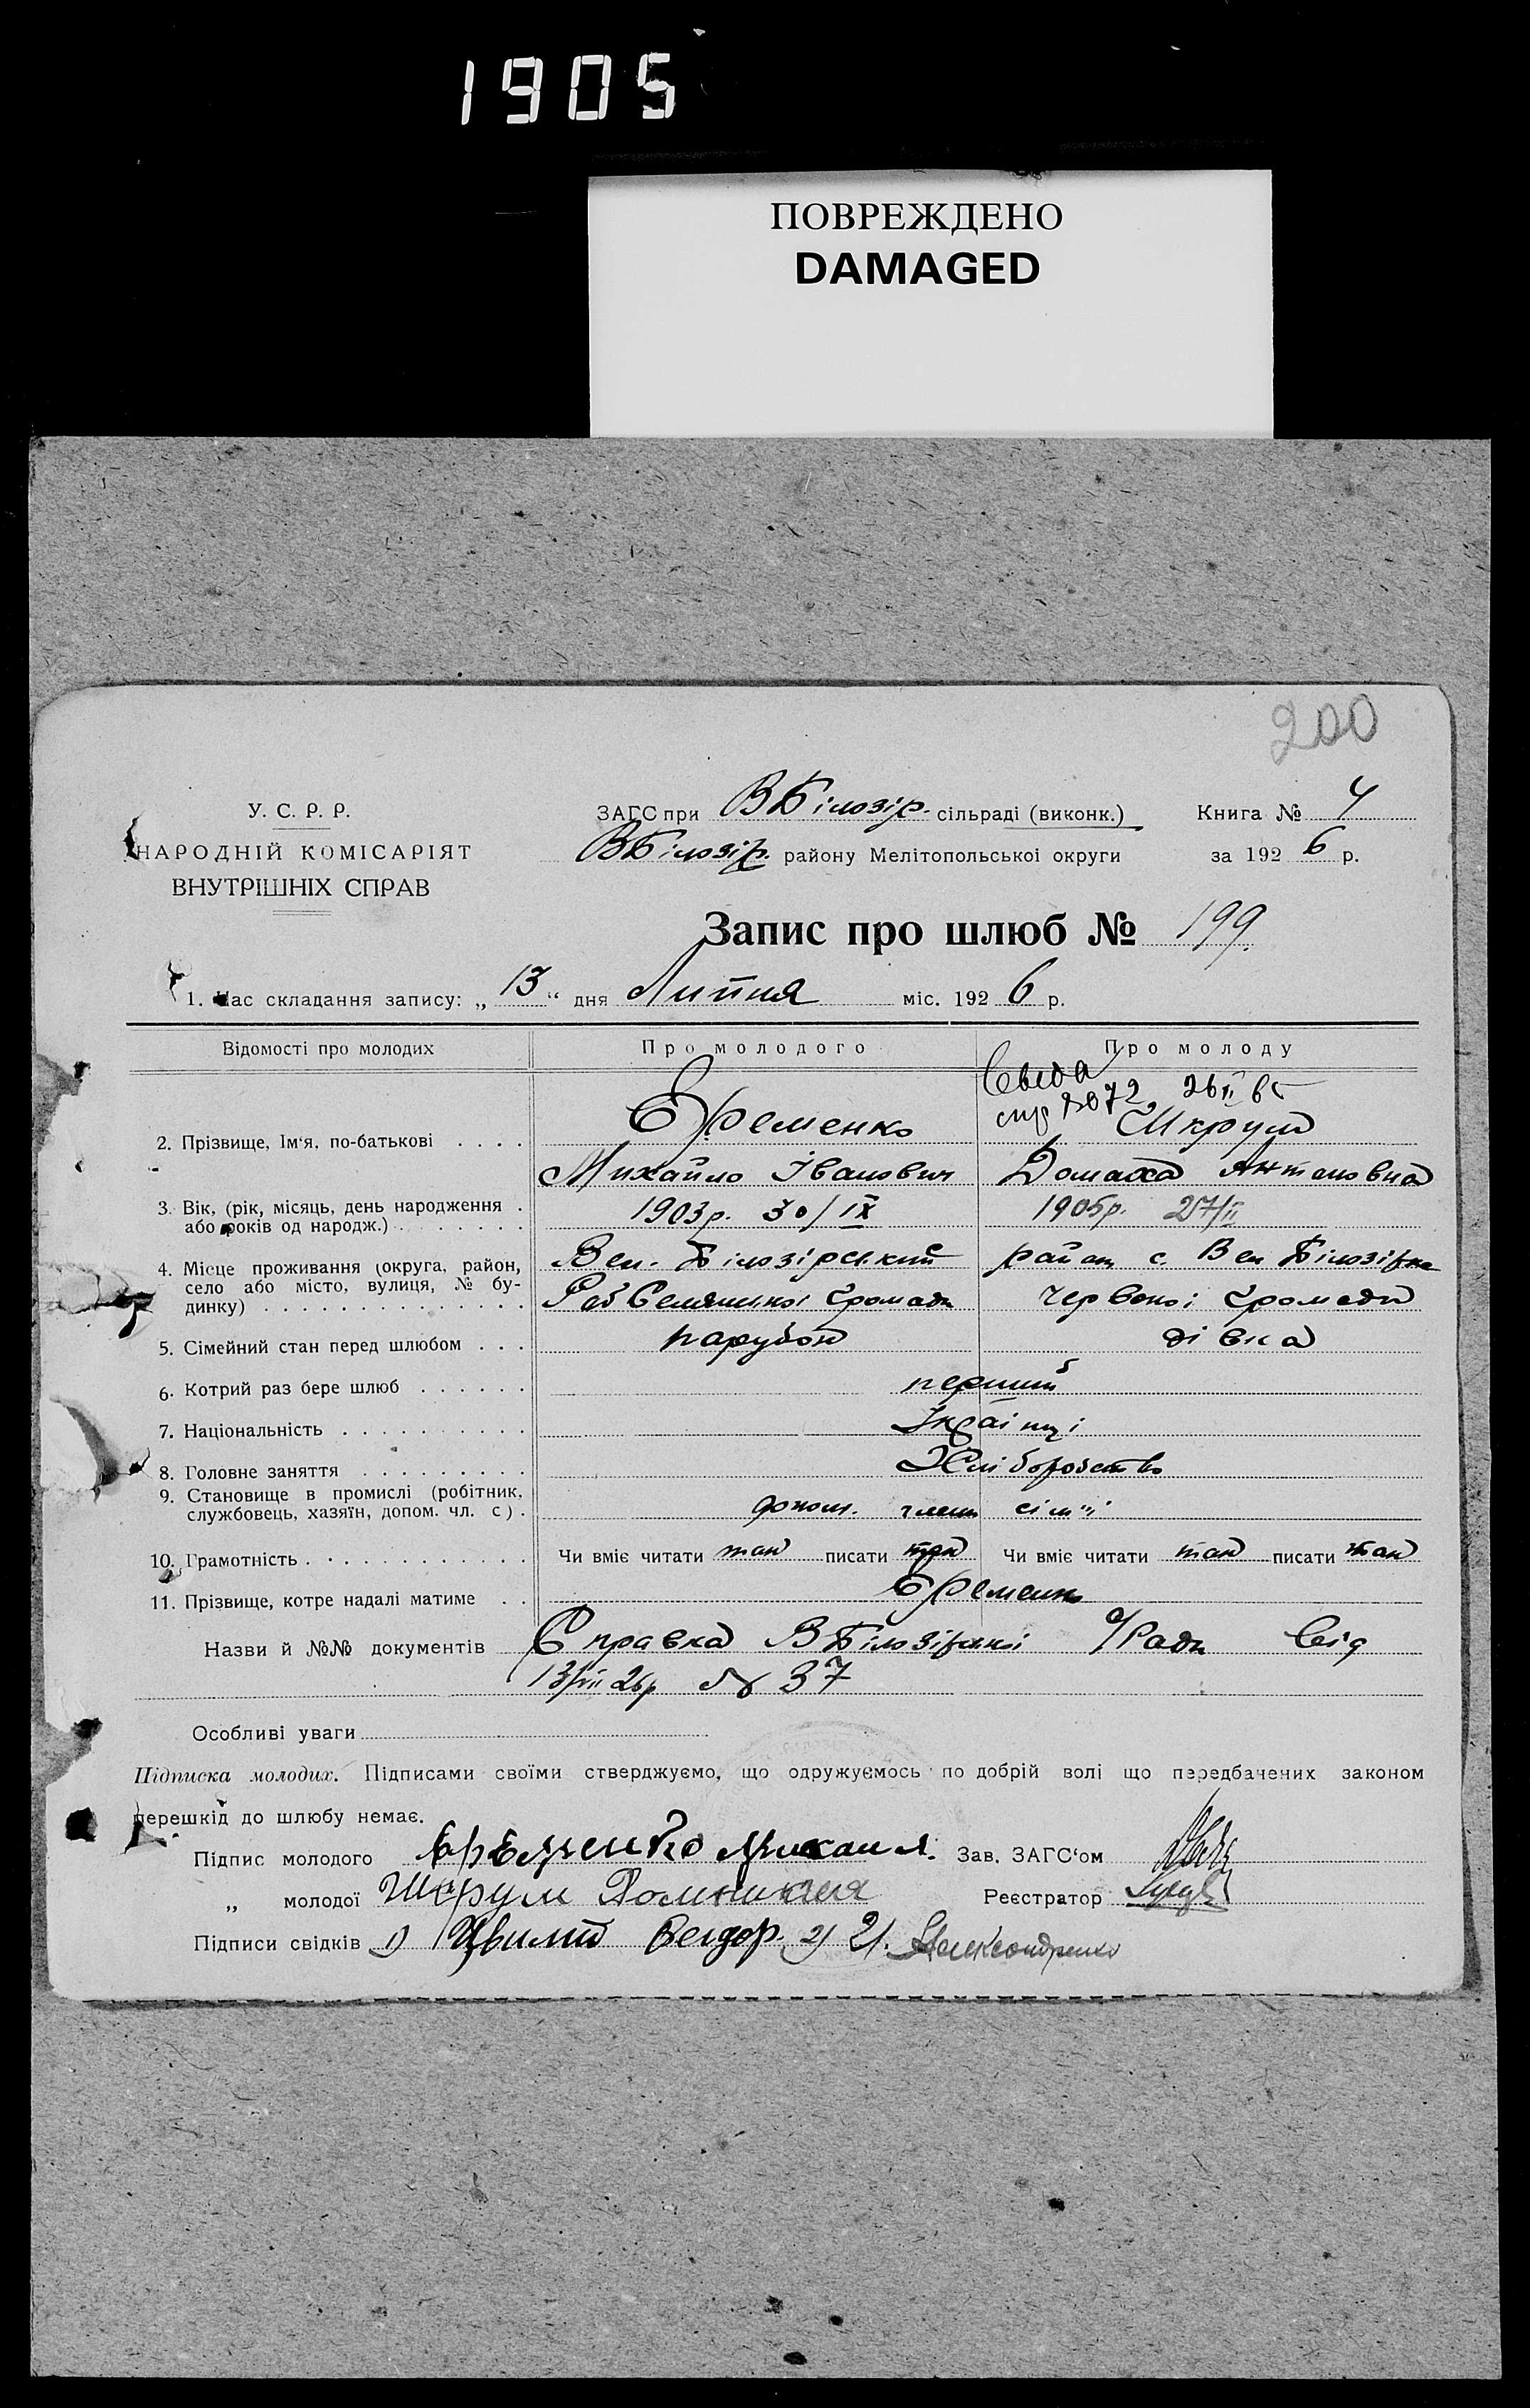 1905
ПОВРЕЖДЕНО
DAMAGED
200
У. С. Р. Р.
НАРОДНІЙ КОМІСАРІЯТ
ВНУТРІШНІХ СПРАВ
ЗАГС при ВБілозір. сільраді (виконк.)
ВБілозір. району Мелітопольської округи
Книга № 4
за 1926 р.
Запис про шлюб № 199.
1. Час складання запису: „13“ дня Липня міс. 1926 р.
Відомості про молодих Про молодого Про молоду
26 II 65
2. Прізвище, Ім'я, по-батькові . . . . Єременко Шкрум
Михайло Іванович Домаха Антоновна
3. Вік, (рік, місяць, день народження . 1903р. 30/IX 1905р. 27/II
або років од народж.) . . . . . . .
4. Місце проживання (округа, район, Вел. Білозірський район с. Вел Білозірка
село або місто, вулиця, № бу-
динку) . . . . . . . . . . . . . . Громади Червоної Громади
5. Сімейний стан перед шлюбом . . . парубок дівка
6. Котрий раз бере шлюб . . . . . . перший
7. Національність . . . . . . . . . . Українці
8. Головне заняття . . . . . . . . . Хліборобство
9. Становище в промислі (робітник,
службовець, хазяїн, допом. чл. с) . допом. члени сім'ї
10. Грамотність . . . . . . . . . . . . Чи вміє читати так писати так Чи вміє читати так писати так
11. Прізвище, котре надалі матиме . . Єременко
Назви й №№ документів Справка ВБілозірської С/Ради від
13/VII 26р № 37
Особливі уваги
Підписка молодих. Підписами своїми стверджуємо, що одружуємось по добрій волі що передбачених законом
перешкід до шлюбу немає.
Підпис молодого Єременко Михаил. Зав. ЗАГС'ом
„ молодої Шкрум Домникия Реєстратор
Підписи свідків 1) Цвилий 2) Александренко